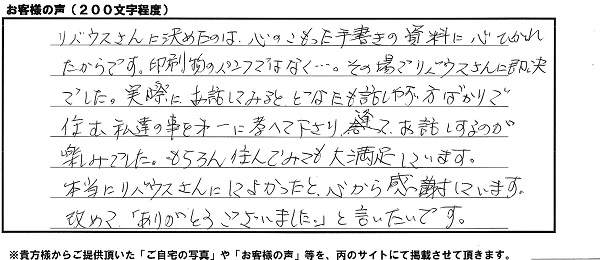 お客様の声（２００文字程度）
リバウスさんに決めたのは、心のこもった手書きの資料に心ひかれ
たからです。印刷物のパンフではなく…。その場でリバウスさんに即決
でした。実際に お話してみると、どなたも話しやすい方ばかりで
住む私達の事を第一に考えて下さり、逢って、お話しするのが
楽しみでした。もちろん住んでみても大満足しています。
本当にリバウスさんにしてよかったと、心から感謝しています。
改めて、「ありがとうございました。」と言いたいです。
※貴方様からご提供頂いた「ご自宅の写真」や「お客様の声」等を、丙のサイトにて掲載させて頂きます。